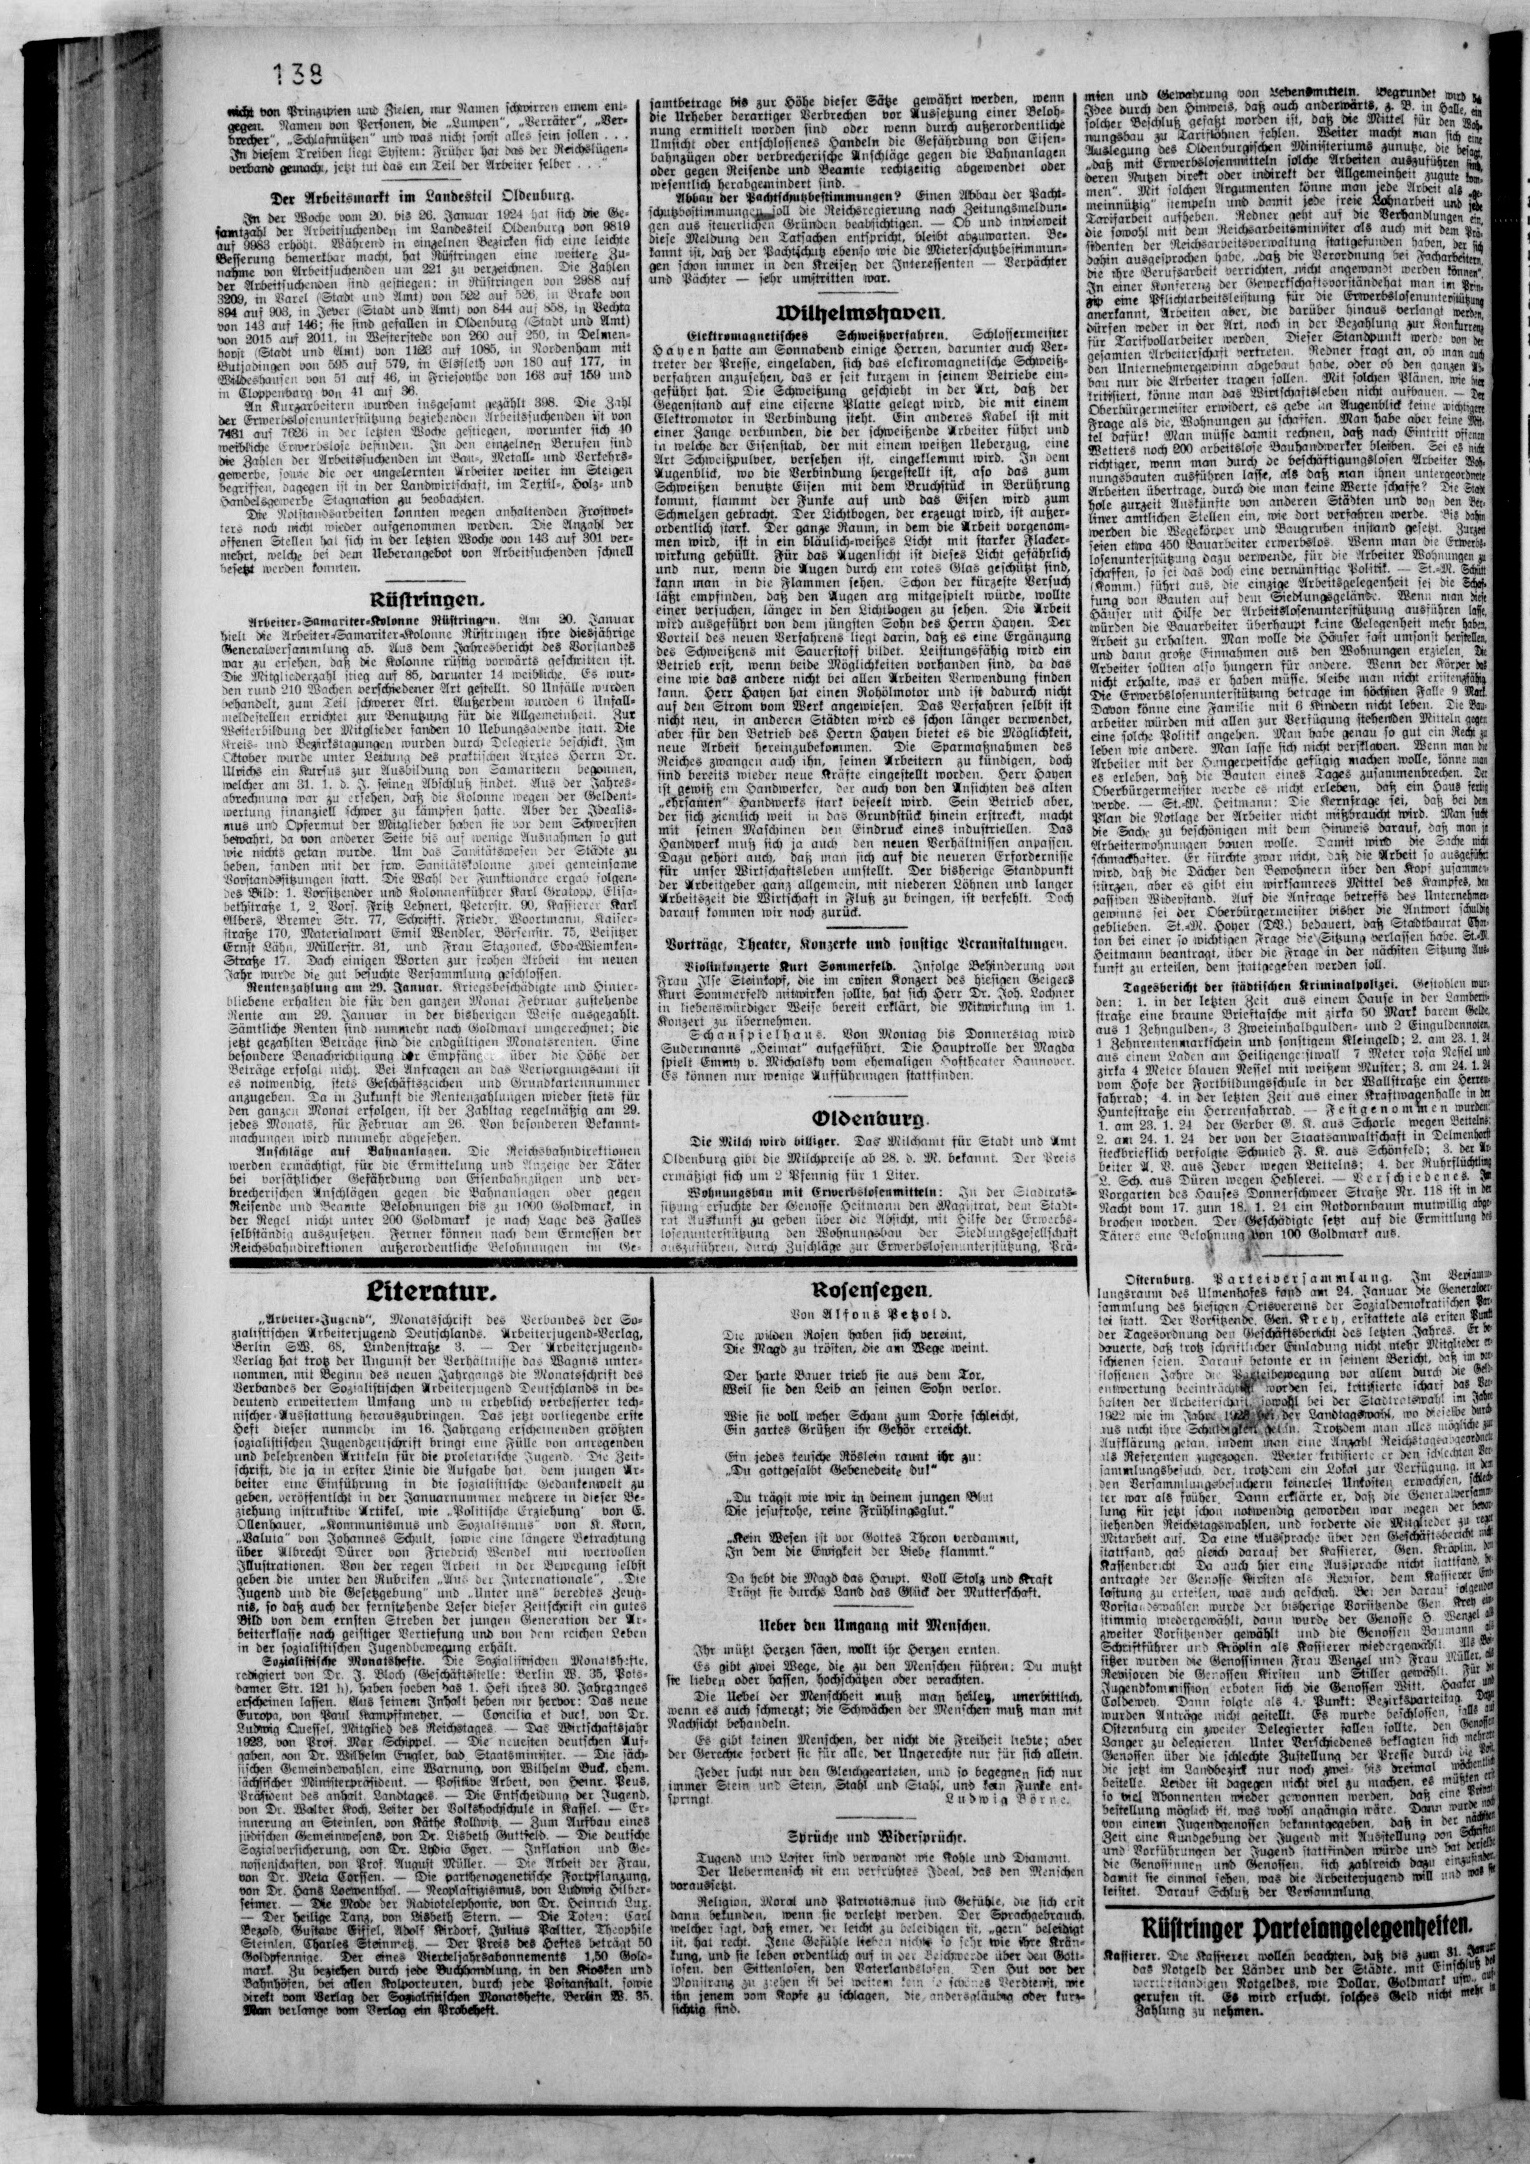 138
nicht von Prinzipien und Zielen, nur Namen schwirren einem ent-
gegen. Namen von Personen, die „Lumpen“, „Verräter“, „Ver-
brecher“, „Schlafmützen“ und was nicht sonst alles sein sollen . . .
In diesem Treiben liegt System: Früher hat das der Reichslügen-
verband gemacht, jetzt tut das ein Teil der Arbeiter selber . . .“
Der Arbeitsmarkt im Landesteil Oldenburg.
In der Woche vom 20. bis 26. Januar 1924 hat sich die Ge-
samtzahl der Arbeitsuchenden im Landesteil Oldenburg von 9819
auf 9983 erhöht. Während in einzelnen Bezirken sich eine leichte
Besserung bemerkbar macht, hat Rüstringen eine weitere Zu-
nahme von Arbeitsuchenden um 221 zu verzeichnen. Die Zahlen
der Arbeitsuchenden sind gestiegen: in Rüstringen von 2988 auf
3209, in Varel (Stadt und Amt) von 522 auf 526, in Brake von
894 auf 903, in Jever (Stadt und Amt) von 844 auf 858, in Vechta
von 143 auf 146; sie sind gefallen in Oldenburg (Stadt und Amt)
von 2015 auf 2011, in Westerstede von 260 auf 250, in Delmen-
horst (Stadt und Amt) von 1123 auf 1085, in Nordenham mit
Butjadingen von 595 auf 579, in Elsfleth von 180 auf 177, in
Wildeshausen von 51 auf 46, in Friesoythe von 163 auf 159 und
in Cloppenburg von 41 auf 36.
An Kurzarbeitern wurden insgesamt gezählt 398. Die Zahl
der Erwerbslosenunterstützung beziehenden Arbeitsuchenden ist von
7431 auf 7626 in der letzten Woche gestiegen, worunter sich 40
weibliche Erwerbslose befinden. In den einzelnen Berufen sind
die Zahlen der Arbeitsuchenden im Bau-, Metall- und Verkehrs-
gewerbe, sowie die der ungelernten Arbeiter weiter im Steigen
begriffen, dagegen ist in der Landwirtschaft, im Textil-, Holz- und
Handelsgewerbe Stagnation zu beobachten.
Die Notstandsarbeiten konnten wegen anhaltenden Frostwet-
ters noch nicht wieder aufgenommen werden. Die Anzahl der
offenen Stellen hat sich in der letzten Woche von 143 auf 301 ver-
mehrt, welche bei dem Ueberangebot von Arbeitsuchenden schnell
besetzt werden konnten.
Rüstringen.
Arbeiter-Samariter-Kolonne Rüstringen. Am 20. Januar
hielt die Arbeiter-Samariter-Kolonne Rüstringen ihre diesjährige
Generalversammlung ab. Aus dem Jahresbericht des Vorstandes
war zu ersehen, daß die Kolonne rüstig vorwärts geschritten ist.
Die Mitgliederzahl stieg auf 85, darunter 14 weibliche. Es wur-
den rund 210 Wachen verschiedener Art gestellt. 80 Unfälle wurden
behandelt, zum Teil schwerer Art. Außerdem wurden 6 Unfall-
meldestellen errichtet zur Benutzung für die Allgemeinheit. Zur
Weiterbildung der Mitglieder fanden 10 Uebungsabende statt. Die
Kreis- und Bezirkstagungen wurden durch Delegierte beschickt. Im
Oktober wurde unter Leitung des praktischen Arztes Herrn Dr.
Ulrichs ein Kursus zur Ausbildung von Samaritern begonnen,
welcher am 31. 1. d. J. seinen Abschluß findet. Aus der Jahres-
abrechnung war zu ersehen, daß die Kolonne wegen der Geldent-
wertung finanziell schwer zu kämpfen hatte. Aber der Idealis-
mus und Opfermut der Mitglieder haben sie vor dem Schwersten
bewahrt, da von anderer Seite bis auf wenige Ausnahmen so gut
wie nichts getan wurde. Um das Sanitätswesen der Städte zu
heben, fanden mit der frw. Sanitätskolonne zwei gemeinsame
Vorstandssitzungen statt. Die Wahl der Funktionäre ergab folgen-
des Bild: 1. Vorsitzender und Kolonnenführer Karl Gratopp, Elisa-
bethstraße 1, 2. Vors. Fritz Lehnert, Peterstr. 90, Kassierer Karl
Albers, Bremer Str. 77, Schriftf. Friedr. Woortmann, Kaiser-
straße 170, Materialwart Emil Wendler, Börsenstr. 75, Beisitzer
Ernst Lähn, Müllerstr. 31, und Frau Stazoneck, Edo-Wiemken-
Straße 17. Dach einigen Worten zur frohen Arbeit im neuen
Jahr wurde die gut besuchte Versammlung geschlossen.
Rentenzahlung am 29. Januar. Kriegsbeschädigte und Hinter-
bliebene erhalten die für den ganzen Monat Februar zustehende
Rente am 29. Januar in der bisherigen Weise ausgezahlt.
Sämtliche Renten sind nunmehr nach Goldmark umgerechnet; die
jetzt gezahlten Beträge sind die endgültigen Monatsrenten. Eine
besondere Benachrichtigung der Empfänger über die Höhe der
Beträge erfolgt nicht. Bei Anfragen an das Versorgungsamt ist
es notwendig, stets Geschäftszeichen und Grundkartennummer
anzugeben. Da in Zukunft die Rentenzahlungen wieder stets für
den ganzen Monat erfolgen, ist der Zahltag regelmäßig am 29.
jedes Monats, für Februar am 26. Von besonderen Bekannt-
machungen wird nunmehr abgesehen.
Anschläge auf Bahnanlagen. Die Reichsbahndirektionen
werden ermächtigt, für die Ermittelung und Anzeige der Täter
bei vorsätzlicher Gefährdung von Eisenbahnzügen und ver-
brecherischen Anschlägen gegen die Bahnanlagen oder gegen
Reisende und Beamte Belohnungen bis zu 1000 Goldmark, in
der Regel nicht unter 200 Goldmark je nach Lage des Falles
selbständig auszusetzen. Ferner können nach dem Ermessen der
Reichsbahndirektionen außerordentliche Belohnungen im Ge-
samtbetrage bis zur Höhe dieser Sätze gewährt werden, wenn
die Urheber derartiger Verbrechen vor Aussetzung einer Beloh-
nung ermittelt worden sind oder wenn durch außerordentliche
Umsicht oder entschlossenes Handeln die Gefährdung von Eisen-
bahnzügen oder verbrecherische Anschläge gegen die Bahnanlagen
oder gegen Reisende und Beamte rechtzeitig abgewendet oder
wesentlich herabgemindert sind.
Abbau der Pachtschutzbestimmungen? Einen Abbau der Pacht-
schutzbestimmungen soll die Reichsregierung nach Zeitungsmeldun-
gen aus steuerlichen Gründen beabsichtigen. — Ob und inwieweit
diese Meldung den Tatsachen entspricht, bleibt abzuwarten. Be-
kannt ist, daß der Pachtschutz ebenso wie die Mieterschutzbestimmun-
gen schon immer in den Kreisen der Interessenten — Verpächter
und Pächter — sehr umstritten war.
Wilhelmshaven.
Elektromagnetisches Schweißverfahren. Schlossermeister
Hayen hatte am Sonnabend einige Herren, darunter auch Ver-
treter der Presse, eingeladen, sich das elektromagnetische Schweiß-
verfahren anzusehen, das er seit kurzem in seinem Betriebe ein-
geführt hat. Die Schweißung geschieht in der Art, daß der
Gegenstand auf eine eiserne Platte gelegt wird, die mit einem
Elektromotor in Verbindung steht. Ein anderes Kabel ist mit
einer Zange verbunden, die der schweißende Arbeiter führt und
in welche der Eisenstab, der mit einem weißen Ueberzug, eine
Art Schweißpulver, versehen ist, eingeklemmt wird. In dem
Augenblick, wo die Verbindung hergestellt ist, also das zum
Schweißen benutzte Eisen mit dem Bruchstück in Berührung
kommt, flammt der Funke auf und das Eisen wird zum
Schmelzen gebracht. Der Lichtbogen, der erzeugt wird, ist außer-
ordentlich stark. Der ganze Raum, in dem die Arbeit vorgenom-
men wird, ist in ein bläulich-weißes Licht mit starker Flacker-
wirkung gehüllt. Für das Augenlicht ist dieses Licht gefährlich
und nur, wenn die Augen durch ein rotes Glas geschützt sind,
kann man in die Flammen sehen. Schon der kürzeste Versuch
läßt empfinden, daß den Augen arg mitgespielt würde, wollte
einer versuchen, länger in den Lichtbogen zu sehen. Die Arbeit
wird ausgeführt von dem jüngsten Sohn des Herrn Hayen. Der
Vorteil des neuen Verfahrens liegt darin, daß es eine Ergänzung
des Schweißens mit Sauerstoff bildet. Leistungsfähig wird ein
Betrieb erst, wenn beide Möglichkeiten vorhanden sind, da das
eine wie das andere nicht bei allen Arbeiten Verwendung finden
kann. Herr Hayen hat einen Rohölmotor und ist dadurch nicht
auf den Strom vom Werk angewiesen. Das Verfahren selbst ist
nicht neu, in anderen Städten wird es schon länger verwendet,
aber für den Betrieb des Herrn Hayen bietet es die Möglichkeit,
neue Arbeit hereinzubekommen. Die Sparmaßnahmen des
Reiches zwangen auch ihn, seinen Arbeitern zu kündigen, doch
sind bereits wieder neue Kräfte eingestellt worden. Herr Hayen
ist gewiß ein Handwerker, der auch von den Ansichten des alten
„ehrsamen“ Handwerks stark beseelt wird. Sein Betrieb aber,
der sich ziemlich weit in das Grundstück hinein erstreckt, macht
mit seinen Maschinen den Eindruck eines industriellen. Das
Handwerk muß sich ja auch den neuen Verhältnissen anpassen.
Dazu gehört auch, daß man sich auf die neueren Erfordernisse
für unser Wirtschaftsleben umstellt. Der bisherige Standpunkt
der Arbeitgeber ganz allgemein, mit niederen Löhnen und langer
Arbeitszeit die Wirtschaft in Fluß zu bringen, ist verfehlt. Doch
darauf kommen wir noch zurück.
Vorträge, Theater, Konzerte und sonstige Veranstaltungen.
Violinkonzerte Kurt Sommerfeld. Infolge Behinderung von
Frau Ilse Steinkopf, die im ersten Konzert des hiesigen Geigers
Kurt Sommerfeld mitwirken sollte, hat sich Herr Dr. Joh. Lochner
in liebenswürdiger Weise bereit erklärt, die Mitwirkung im 1.
Konzert zu übernehmen.
Schauspielhaus. Von Montag bis Donnerstag wird
Sudermanns „Heimat“ aufgeführt. Die Hauptrolle der Magda
spielt Emmy v. Michalsky vom ehemaligen Hoftheater Hannover.
Es können nur wenige Aufführungen stattfinden.
Oldenburg.
Die Milch wird billiger. Das Milchamt für Stadt und Amt
Oldenburg gibt die Milchpreise ab 28. d. M. bekannt. Der Preis
ermäßigt sich um 2 Pfennig für 1 Liter.
Wohnungsbau mit Erwerbslosenmitteln: In der Stadtrats-
sitzung ersuchte der Genosse Heitmann den Magistrat, dem Stadt-
rat Auskunft zu geben über die Absicht, mit Hilfe der Erwerbs-
losenunterstützung den Wohnungsbau der Siedlungsgesellschaft
auszuführen, durch Zuschläge zur Erwerbslosenunterstützung, Prä-
mien und Gewährung von Lebensmitteln. Begründet wird die
Idee durch den Hinweis, daß auch anderwärts, z. B. in Halle, ein
solcher Beschluß gefaßt worden ist, daß die Mittel für den Woh-
nungsbau zu Tariflöhnen fehlen. Weiter macht man sich eine
Auslegung des Oldenburgischen Ministeriums zunutze, die besagt,
„daß mit Erwerbslosenmitteln solche Arbeiten auszuführen sind,
deren Nutzen direkt oder indirekt der Allgemeinheit zugute kom-
men“. Mit solchen Argumenten könne man jede Arbeit als „ge-
meinnützig“ stempeln und damit jede freie Lohnarbeit und jede
Tarifarbeit aufheben. Redner geht auf die Verhandlungen ein,
die sowohl mit dem Reichsarbeitsminister als auch mit dem Prä-
sidenten der Reichsarbeitsverwaltung stattgefunden haben, der sich
dahin ausgesprochen habe, „daß die Verordnung bei Facharbeitern,
die ihre Berufsarbeit verrichten, nicht angewandt werden können“.
In einer Konferenz der Gewerkschaftsvorständehat man im Prin-
zip eine Pflichtarbeitsleistung für die Erwerbslosenunterstützung
anerkannt, Arbeiten aber, die darüber hinaus verlangt werden,
dürfen weder in der Art, noch in der Bezahlung zur Konkurrenz
für Tarifvollarbeiter werden. Dieser Standpunkt werde von der
gesamten Arbeiterschaft vertreten. Redner fragt an, ob man auch
den Unternehmergewinn abgebaut habe, oder ob den ganzen Ab-
bau nur die Arbeiter tragen sollen. Mit solchen Plänen, wie hier
kritisiert, könne man das Wirtschaftsleben nicht aufbauen. — Der
Oberbürgermeister erwidert, es gebe im Augenblick keine wichtigere
Frage als die, Wohnungen zu schaffen. Man habe aber keine Mit-
tel dafür! Man müsse damit rechnen, daß nach Eintritt offenen
Wetters noch 200 arbeitslose Bauhandwerker bleiben. Sei es nicht
richtiger, wenn man durch de beschäftigungslosen Arbeiter Woh-
nungsbauten ausführen lasse, als daß man ihnen untergeordnete
Arbeiten übertrage, durch die man keine Werte schaffe? Die Stadt
hole zurzeit Auskünfte von anderen Städten und von den Ber-
liner amtlichen Stellen ein, wie dort verfahren werde. Bis dahin
werden die Wegekörper und Baugruben instand gesetzt. Zurzeit
seien etwa 450 Bauarbeiter erwerbslos. Wenn man die Erwerbs-
losenunterstützung dazu verwende, für die Arbeiter Wohnungen zu
schaffen, so sei das doch eine vernünftige Politik. — St.-M. Schütt
(Komm.) führt aus, die einzige Arbeitsgelegenheit sei die Schaf-
fung von Bauten auf dem Siedlungsgelände. Wenn man diese
Häuser mit Hilfe der Arbeitslosenunterstützung ausführen lasse,
würden die Bauarbeiter überhaupt keine Gelegenheit mehr haben,
Arbeit zu erhalten. Man wolle die Häuser fast umsonst herstellen,
und dann große Einnahmen aus den Wohnungen erzielen. Die
Arbeiter sollten also hungern für andere. Wenn der Körper das
nicht erhalte, was er haben müsse, bleibe man nicht existenzfähig.
Die Erwerbslosenunterstützung betrage im höchsten Falle 9 Mark.
Davon könne eine Familie mit 6 Kindern nicht leben. Die Bau-
arbeiter würden mit allen zur Verfügung stehenden Mitteln gegen
eine solche Politik angehen. Man habe genau so gut ein Recht zu
leben wie andere. Man lasse sich nicht versklaven. Wenn man die
Arbeiter mit der Hungerpeitsche gefügig machen wolle, könne man
es erleben, daß die Bauten eines Tages zusammenbrechen. Der
Oberbürgermeister werde es nicht erleben, daß ein Haus fertig
werde. — St.-M. Heitmann: Die Kernfrage sei, daß bei dem
Plan die Notlage der Arbeiter nicht mißbraucht wird. Man sucht
die Sache zu beschönigen mit dem Hinweis darauf, daß man ja
Arbeiterwohnungen bauen wolle. Damit wird die Sache nicht
schmackhafter. Er fürchte zwar nicht, daß die Arbeit so ausgeführt
wird, daß die Dächer den Bewohnern über den Kopf zusammen-
stürzen, aber es gibt ein wirksamrees Mittel des Kampfes, den
passiven Widerstand. Auf die Anfrage betreffs des Unternehmer-
gewinns sei der Oberbürgermeister bisher die Antwort schuldig
geblieben. St.-M. Hoyer (DV.) bedauert, daß Stadtbaurat Char-
ton bei einer so wichtigen Frage die Sitzung verlassen habe. St.-M.
Heitmann beantragt, über die Frage in der nächsten Sitzung Aus-
kunft zu erteilen, dem stattgegeben werden soll.
Tagesbericht der städtischen Kriminalpolizei. Gestohlen wur-
den: 1. in der letzten Zeit aus einem Hause in der Lamberti-
straße eine braune Brieftasche mit zirka 50 Mark barem Gelde,
aus 1 Zehngulden-, 3 Zweieinhalbgulden- und 2 Einguldennoten,
1 Zehnrentenmarkschein und sonstigem Kleingeld; 2. am 23. 1. 24
aus einem Laden am Heiligengeistwall 7 Meter rosa Nessel und
zirka 4 Meter blauen Nessel mit weißem Muster; 3. am 24. 1. 24
vom Hofe der Fortbildungsschule in der Wallstraße ein Herren-
fahrrad; 4. in der letzten Zeit aus einer Kraftwagenhalle in der
Huntestraße ein Herrenfahrrad. — Festgenommen wurden:
1. am 23. 1. 24 der Gerber G. K. aus Schorle wegen Bettelns;
2. am 24. 1. 24 der von der Staatsanwaltschaft in Delmenhorst
steckbrieflich verfolgte Schmied F. K. aus Schönfeld; 3. der Ar-
beiter A. V. aus Jever wegen Bettelns; 4. der Ruhrflüchtling
L. Sch. aus Düren wegen Hehlerei. — Verschiedenes. Im
Vorgarten des Hauses Donnerschweer Straße Nr. 118 ist in der
Nacht vom 17. zum 18. 1. 24 ein Rotdornbaum mutwillig abge-
brochen worden. Der Geschädigte setzt auf die Ermittlung des
Täters eine Belohnung von 100 Goldmark aus.
Osternburg. Parteiversammlung. Im Versamm-
lungsraum des Ulmenhofes fand am 24. Januar die Generalver-
sammlung des hiesigen Ortsvereins der Sozialdemokratischen Par-
tei statt. Der Vorsitzende, Gen. Krey, erstattete als ersten Punkt
der Tagesordnung den Geschäftsbericht des letzten Jahres. Er be-
dauerte, daß trotz schriftlicher Einladung nicht mehr Mitglieder er-
schienen seien. Darauf betonte er in seinem Bericht, daß im ver-
flossenen Jahre die Parteibewegung vor allem durch die Geld-
entwertung beeinträchtigt worden sei, kritisierte scharf das Ver-
halten der Arbeiterschaft, sowohl bei der Stadtratswahl im Jahre
1922 wie im Jahre 1923 bei der Landtagswahl, wo dieselbe durch-
aus nicht ihre Schuldigkeit getan. Trotzdem man alles mögliche zur
Aufklärung getan, indem man eine Anzahl Reichstagsabgeordnete
als Referenten zugezogen. Weiter kritisierte er den schlechten Ver-
sammlungsbesuch, der, trotzdem ein Lokal zur Verfügung, in dem
den Versammlungsbesuchern keinerlei Unkosten erwachsen, schlech-
ter war als früher. Dann erklärte er, daß die Generalversamm-
lung für jetzt schon notwendig geworden war wegen der bevor-
stehenden Reichstagswahlen, und forderte die Mitglieder zu reger
Mitarbeit auf. Da eine Aussprache über den Geschäftsbericht nicht
stattfand, gab gleich darauf der Kassierer, Gen. Kröplin, den
Kassenbericht. Da auch hier eine Aussprache nicht stattfand, be-
antragte der Genosse Kirsten als Revisor, dem Kassierer Ent-
lastung zu erteilen, was auch geschah. Bei den darauf folgenden
Vorstandswahlen wurde der bisherige Vorsitzende Gen. Krey ein-
stimmig wiedergewählt, dann wurde der Genosse H. Wenzel als
zweiter Vorsitzender gewählt und die Genossen Baumann als
Schriftführer und Kröplin als Kassierer wiedergewählt. Als Bei-
sitzer wurden die Genossinnen Frau Wenzel und Frau Müller, als
Revisoren die Genossen Kirsten und Stiller gewählt. Für die
Jugendkommission erboten sich die Genossen Witt, Haaker und
Coldewey. Dann folgte als 4. Punkt: Bezirksparteitag. Dazu
wurden Anträge nicht gestellt. Es wurde beschlossen, falls auf
Osternburg ein zweiter Delegierter fallen sollte, den Genossen
Langer zu delegieren. Unter Verschiedenes beklagten sich mehrere
Genossen über die schlechte Zustellung der Presse durch die Post,
die jetzt im Landbezirk nur noch zwei- bis dreimal wöchentlich
bestelle. Leider ist dagegen nicht viel zu machen, es müßten erst
so viel Abonnenten wieder gewonnen werden, daß eine Privat-
bestellung möglich ist, was wohl angängig wäre. Dann wurde noch
von einem Jugendgenossen bekanntgegeben, daß in der nächsten
Zeit eine Kundgebung der Jugend mit Ausstellung von Schriften
und Vorführungen der Jugend stattfinden würde und bat derselbe
die Genossinnen und Genossen, sich zahlreich dazu einzufinden,
damit sie einmal sehen, was die Arbeiterjugend will und was sie
leistet. Darauf Schluß der Versammlung.
Rüstringer Parteiangelegenheiten.
Kassierer. Die Kassierer wollen beachten, daß bis zum 31. Januar
das Notgeld der Länder und der Städte, mit Einschluß des
wertbeständigen Notgeldes, wie Dollar, Goldmark usw., auf-
gerufen ist. Es wird ersucht, solches Geld nicht mehr in
Zahlung zu nehmen.
Literatur.
„Arbeiter-Jugend“, Monatsschrift des Verbandes der So-
zialistischen Arbeiterjugend Deutschlands. Arbeiterjugend-Verlag,
Berlin SW. 68, Lindenstraße 3. — Der Arbeiterjugend-
Verlag hat trotz der Ungunst der Verhältnisse das Wagnis unter-
nommen, mit Beginn des neuen Jahrgangs die Monatsschrift des
Verbandes der Sozialistischen Arbeiterjugend Deutschlands in be-
deutend erweitertem Umfang und in erheblich verbesserter tech-
nischer Ausstattung herauszubringen. Das jetzt vorliegende erste
Heft dieser nunmehr im 16. Jahrgang erscheinenden größten
sozialistischen Jugendzeitschrift bringt eine Fülle von anregenden
und belehrenden Artikeln für die proletarische Jugend. Die Zeit-
schrift, die ja in erster Linie die Aufgabe hat, dem jungen Ar-
beiter eine Einführung in die sozialistische Gedankenwelt zu
geben, veröffentlicht in der Januarnummer mehrere in dieser Be-
ziehung instruktive Artikel, wie „Politische Erziehung“ von E.
Ollenhauer, „Kommunismus und Sozialismus“ von K. Korn,
„Valuta“ von Johannes Schult, sowie eine längere Betrachtung
über Albrecht Dürer von Friedrich Wendel mit wertvollen
Illustrationen. Von der regen Arbeit in der Bewegung selbst
geben die unter den Rubriken „Aus der Internationale“, „Die
Jugend und die Gesetzgebung“ und „Unter uns“ beredtes Zeug-
nis, so daß auch der fernstehende Leser dieser Zeitschrift ein gutes
Bild von dem ernsten Streben der jungen Generation der Ar-
beiterklasse nach geistiger Vertiefung und von dem reichen Leben
in der sozialistischen Jugendbewegung erhält.
Sozialistische Monatshefte. Die Sozialistischen Monatshefte,
redigiert von Dr. J. Bloch (Geschäftsstelle: Berlin W. 35, Pots-
damer Str. 121 h), haben soeben das 1. Heft ihres 30. Jahrganges
erscheinen lassen. Aus seinem Inhalt heben wir hervor: Das neue
Europa, von Paul Kampffmeyer. — Concilia et duc!, von Dr.
Ludwig Quessel, Mitglied des Reichstages. — Das Wirtschaftsjahr
1923, von Prof. Max Schippel. — Die neuesten deutschen Auf-
gaben, von Dr. Wilhelm Engler, bad. Staatsminister. — Die säch-
sischen Gemeindewahlen, eine Warnung, von Wilhelm Buck, ehem.
sächsischer Ministerpräsident. — Positive Arbeit, von Heinr. Peus,
Präsident des anhalt. Landtages. — Die Entscheidung der Jugend,
von Dr. Walter Koch, Leiter der Volkshochschule in Kassel. — Er-
innerung an Steinlen, von Käthe Kollwitz. — Zum Aufbau eines
jüdischen Gemeinwesens, von Dr. Lisbeth Guttfeld. — Die deutsche
Sozialversicherung, von Dr. Lydia Eger. — Inflation und Ge-
nossenschaften, von Prof. August Müller. — Die Arbeit der Frau,
von Dr. Meta Corssen. — Die parthenogenetische Fortpflanzung,
von Dr. Hans Loewenthal. — Neoplastizismus, von Ludwig Hilber-
seimer. — Die Mode der Radiotelephonie, von Dr. Heinrich Lux.
— Der heilige Tanz, von Lisbeth Stern. — Die Toten: Carl
Bezold, Gustave Eiffel, Adolf Kirdorf, Julius Paltter, Théophile
Steinlen, Charles Steinmetz. — Der Preis des Heftes beträgt 50
Goldpfennige. Der eines Vierteljahrsabonnements 1,50 Gold-
mark. Zu beziehen durch jede Buchhandlung, in den Kiosken und
Bahnhöfen, bei allen Kolporteuren, durch jede Postanstalt, sowie
direkt vom Verlag der Sozialistischen Monatshefte, Berlin W. 35.
Man verlange vom Verlag ein Probeheft.
Rosensegen.
Von Alfons Petzold.
Die wilden Rosen haben sich vereint,
Die Magd zu trösten, die am Wege weint.
Der harte Bauer trieb sie aus dem Tor,
Weil sie den Leib an seinen Sohn verlor.
Wie sie voll weher Scham zum Dorfe schleicht,
Ein zartes Grüßen ihr Gehör erreicht.
Ein jedes keusche Röslein raunt ihr zu:
„Du gottgesalbt Gebenedeite du!“
„Du trägst wie wir in deinem jungen Blut
Die jesufrohe, reine Frühlingsglut.“
„Kein Wesen ist vor Gottes Thron verdammt,
In dem die Ewigkeit der Liebe flammt.“
Da hebt die Magd das Haupt. Voll Stolz und Kraft
Trägt sie durchs Land das Glück der Mutterschaft.
Ueber den Umgang mit Menschen.
Ihr müßt Herzen säen, wollt ihr Herzen ernten.
Es gibt zwei Wege, die zu den Menschen führen: Du mußt
sie lieben oder hassen, hochschätzen oder verachten.
Die Uebel der Menschheit muß man heilen, unerbittlich,
wenn es auch schmerzt; die Schwächen der Menschen muß man mit
Nachsicht behandeln.
Es gibt keinen Menschen, der nicht die Freiheit liebte; aber
der Gerechte fordert sie für alle, der Ungerechte nur für sich allein.
Jeder sucht nur den Gleichgearteten, und so begegnen sich nur
immer Stein und Stein, Stahl und Stahl, und kein Funke ent-
springt. Ludwig Börne.
Sprüche und Widersprüche.
Tugend und Laster sind verwandt wie Kohle und Diamant.
Der Uebermensch ist ein verfrühtes Ideal, das den Menschen
voraussetzt.
Religion, Moral und Patriotismus sind Gefühle, die sich erst
dann bekunden, wenn sie verletzt werden. Der Sprachgebrauch,
welcher sagt, daß einer, der leicht zu beleidigen ist, „gern“ beleidigt
ist, hat recht. Jene Gefühle lieben nichts so sehr wie ihre Krän-
kung, und sie leben ordentlich auf in der Beschwerde über den Gott-
losen, den Sittenlosen, den Vaterlandslosen. Den Hut vor der
Monstranz zu ziehen ist bei weitem kein so schönes Verdienst, wie
ihn jenem vom Kopfe zu schlagen, die andersgläubig oder kurz-
sichtig sind.